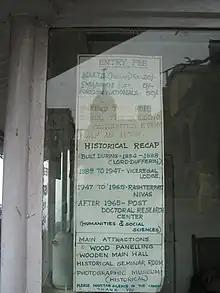 ENTRY FEE
ADULTS
20/-
FOREIGN NATIONALS 50/-
HISTORICAL RECAP
BUILT DURING - 1884 - 1888
(LORD DUFFERIN)
1888 TO 1947 - VICEREGAL
LODGE
1947 TO 1965 - RASHTRAPATI
NIVAS
AFTER 1965 - POST
DOCTORAL RESEARCH
CENTER
(HUMANITIES & SOCIAL
SCIENCES)
MAIN ATTRACTIONS
WOOD PANELLING
WOODEN MAIN HALL
HISTORICAL SEMINAR ROOM
PHOTOGRAPHIC MUSEUM
(HISTORICAL)
PLEASE MAINTAIN SILENCE IN THE
THANK YOU